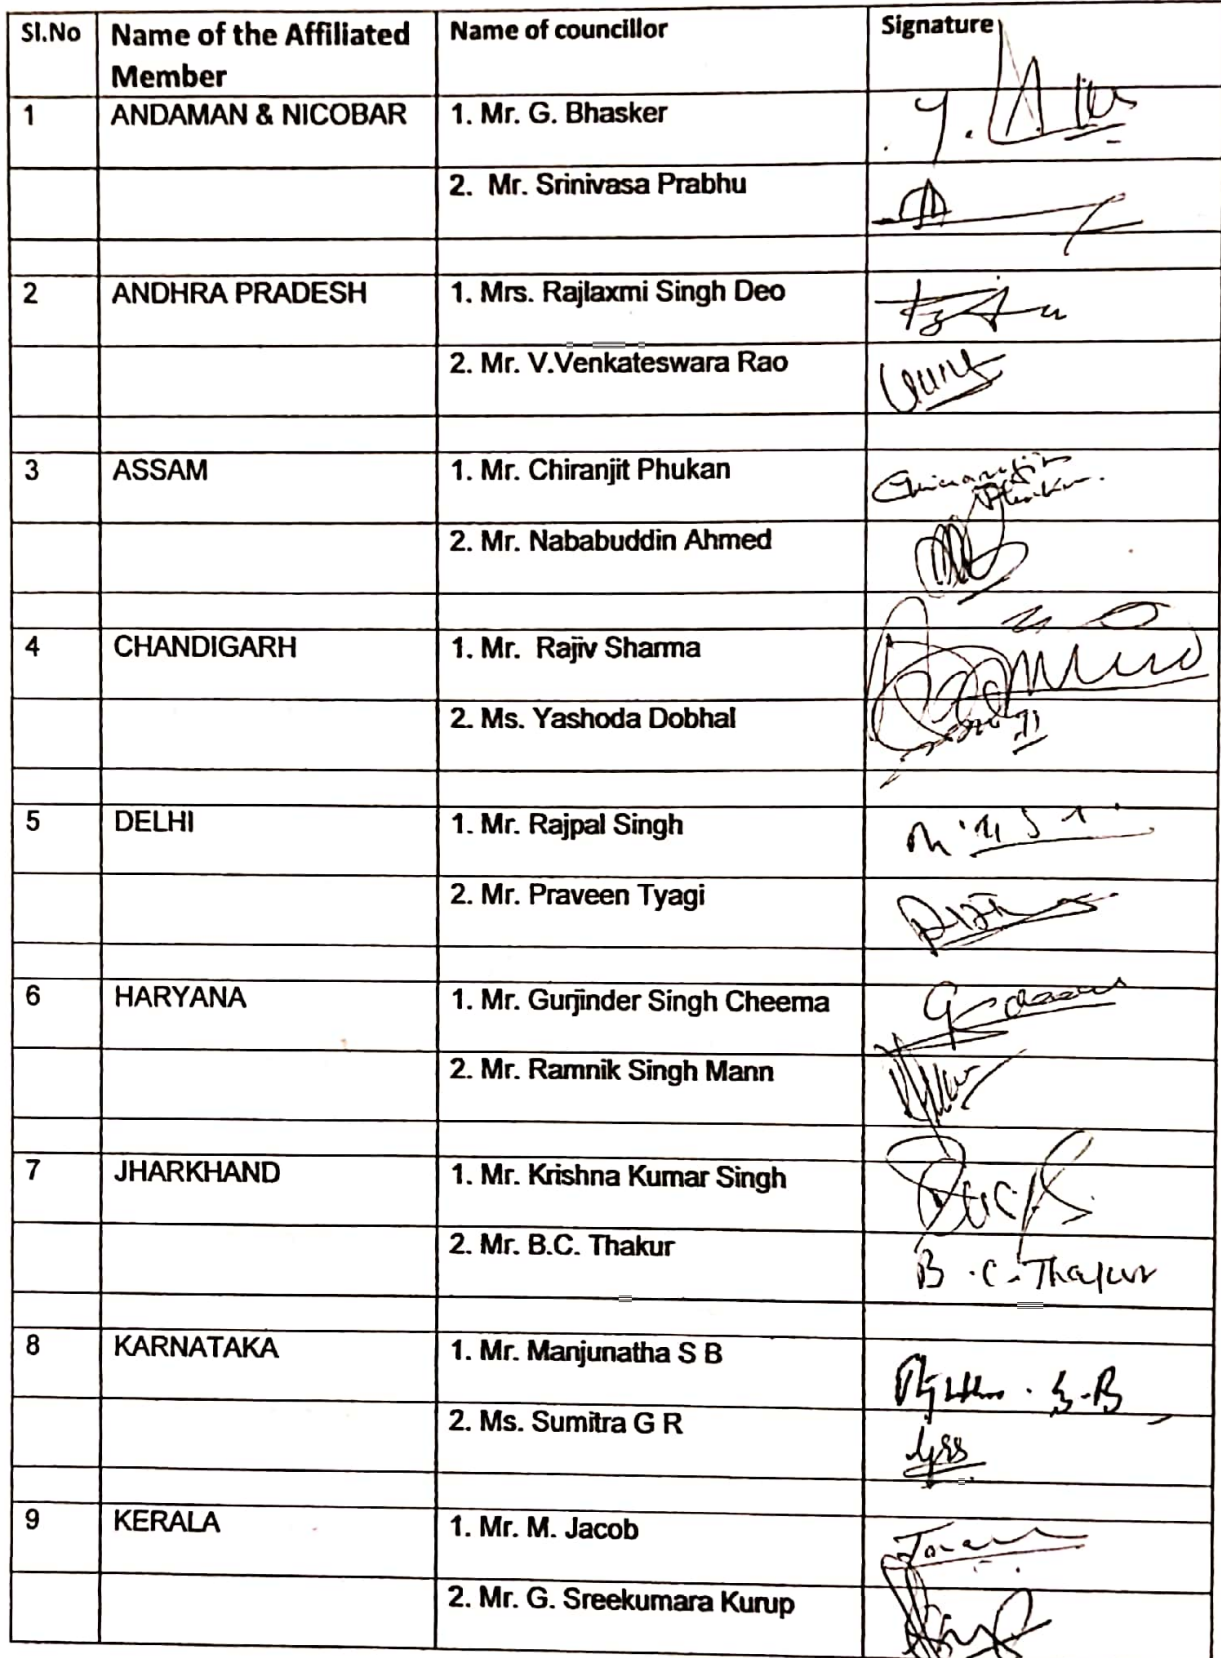 Sl.No Name of the Affiliated Name of councillor Signature
Member
1 ANDAMAN & NICOBAR 1. Mr. G. Bhasker
2. Mr. Srinivasa Prabhu
2 ANDHRA PRADESH 1. Mrs. Rajlaxmi Singh Deo
2. Mr. V.Venkateswara Rao
3 ASSAM 1. Mr. Chiranjit Phukan
2. Mr. Nababuddin Ahmed
4 CHANDIGARH 1. Mr. Rajiv Sharma
2. Ms. Yashoda Dobhal
5 DELHI 1. Mr. Rajpal Singh
2. Mr. Praveen Tyagi
6 HARYANA 1. Mr. Gurjinder Singh Cheema
2. Mr. Ramnik Singh Mann
7 JHARKHAND 1. Mr. Krishna Kumar Singh
2. Mr. B.C. Thakur B.C. Thakur
8 KARNATAKA 1. Mr. Manjunatha S B
2. Ms. Sumitra G R
9 KERALA 1. Mr. M. Jacob
2. Mr. G. Sreekumara Kurup